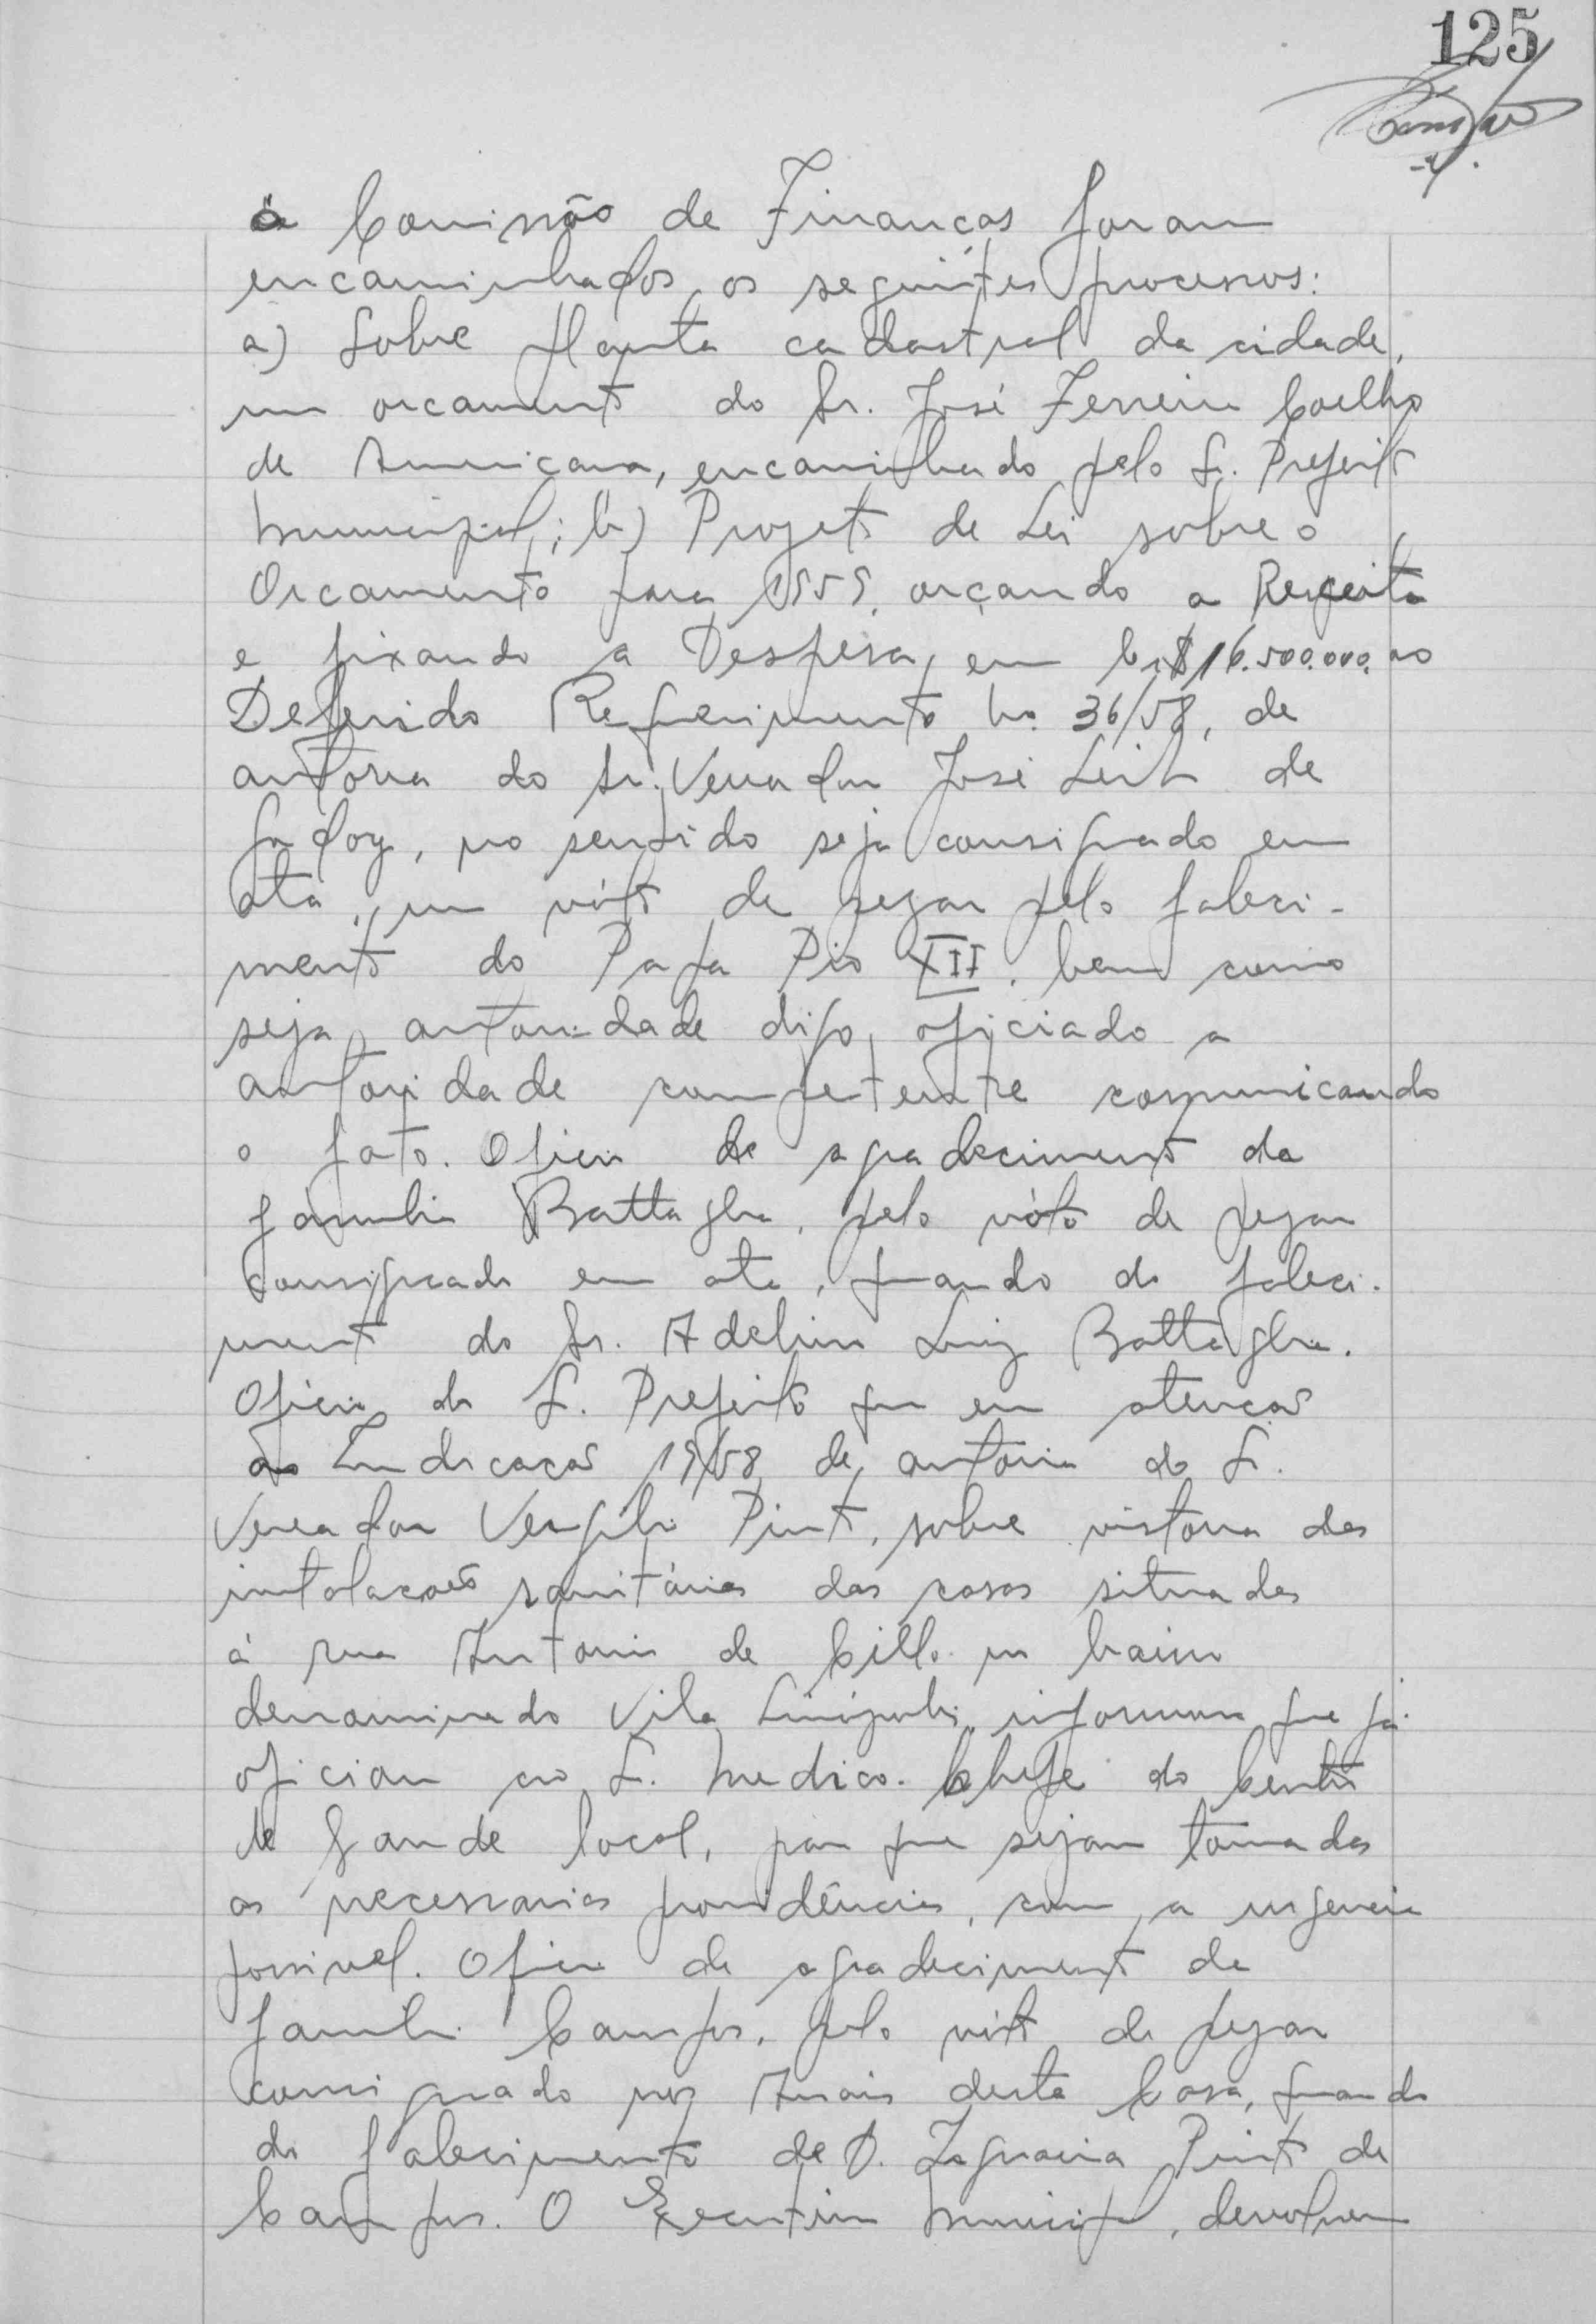 125
à Comissão de Finanças foram
encaminhados os seguintes processos:
a) Sobre planta cadastral da cidade,
um orcamento do Sr. José Ferreira Coelho
de Americana, encaminhado pelo Sr. Prefeito
Municipal; b) Projeto de Lei sobre o
Orcamento para 1959, orçando a Receita
e fixando a Despesa, em Cr\$16.500.000,00
Deferido Requerimento no. 36/58, de
autoria do Sr. Vereador José Leite de
Godoy, no sentido seja consignado em
ata, um vóto de pezar pelo faleci-
mento do Papa Pio XII, bem como
seja autoridade digo, oficiado a
autoridade competente comunicando
o fato. Oficio de agradecimento da
familia Battaglia, pelo vóto de pezar
consignado em ata, quando do faleci-
mento do Sr. Adelino Luiz Battaglia.
Oficio do Sr. Prefeito que em atenção
ao Indicação 19/58 de autoria do Sr.
Vereador Vergilio Pinto, sobre vistoria das
instalações sanitárias das casas situadas
à rua Antonio de Cillo no bairro
denominado Vila informam que já
oficiou ao Sr. Medico-Chefe do Centro
de Saude local, para que sejam tomadas
as necessarias providências, com a urgencia
possivel. Oficio de agradecimento da
familia Campos, pelo vóto de pezar
consignado nos Anais desta Casa, quando
do falecimento de D. Ignacia Pinto de
Campos. O Executivo Municipal, devolveu